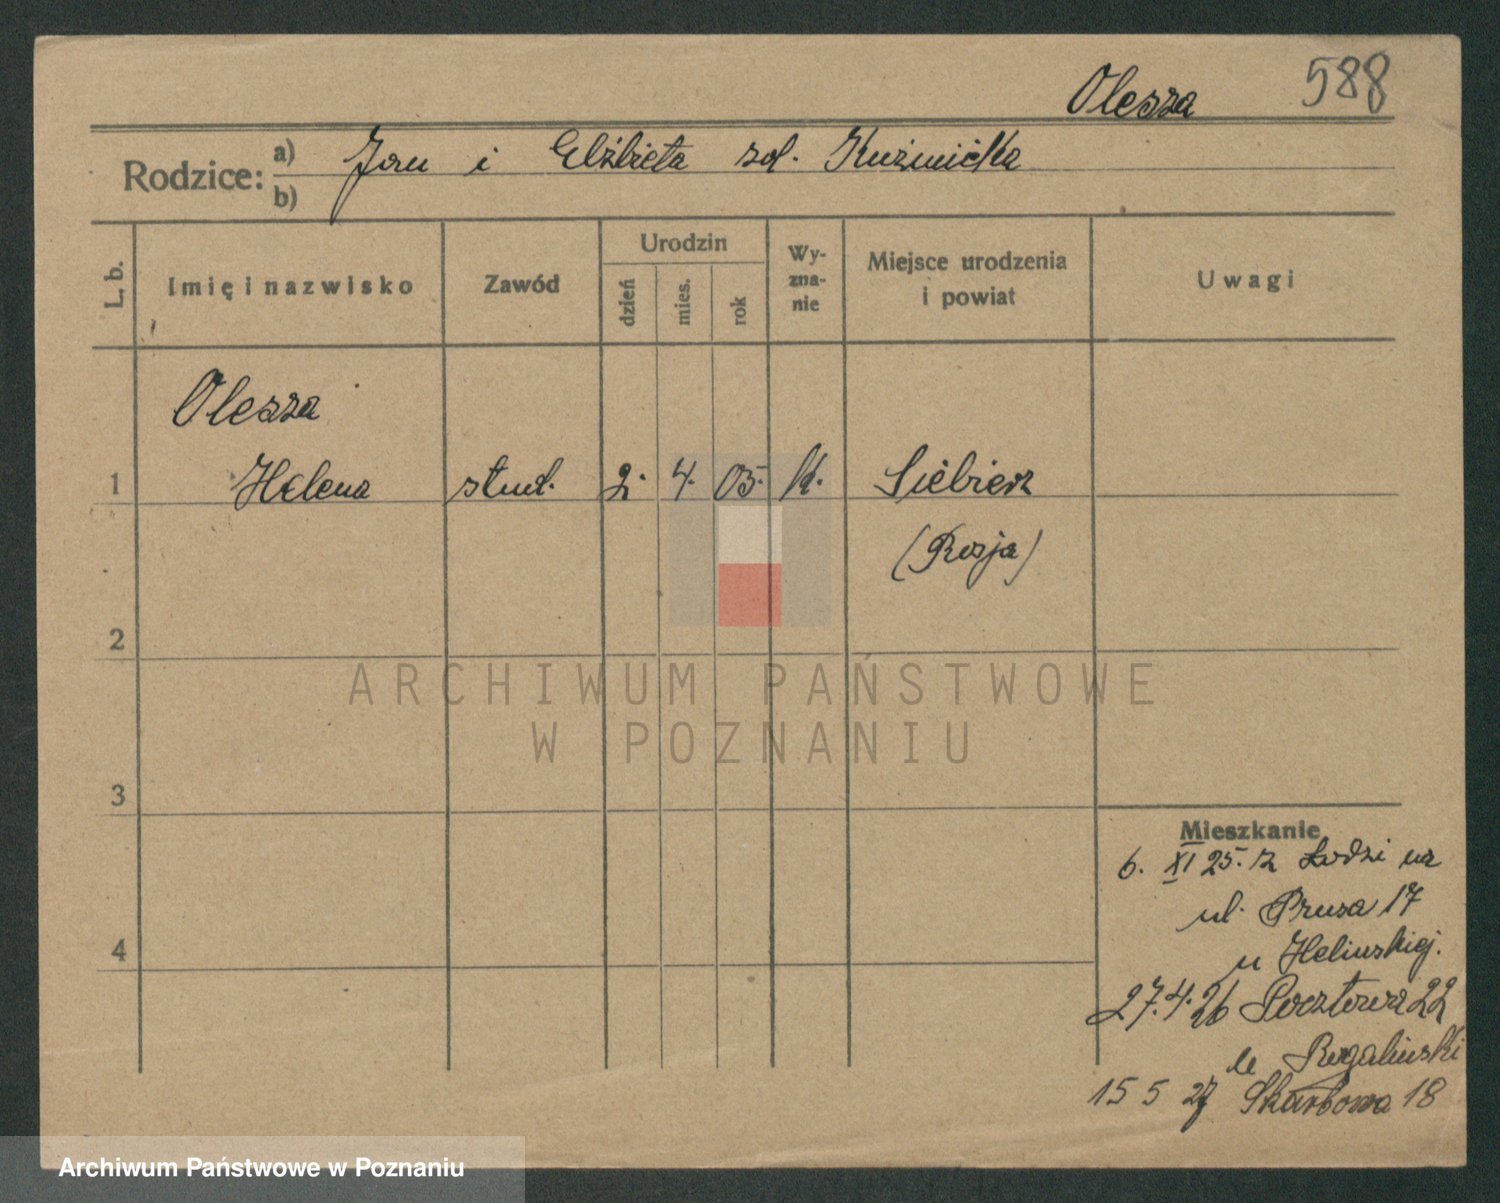 588
Olesza
Rodzice: a) Jan i Elżbieta zd. Kuźmicka
b)
L. b. Imię i nazwisko Zawód Urodzin dzień mies. rok Wy-zna-nie Miejsce urodzenia i powiat Uwagi
Olesza
1 Helena stud. 2. 4. 05. kt. Siebierz
(Rosja)
2
ARCHIWUM PAŃSTWOWE
W POZNANIU
3
Mieszkanie
6. XI 25. z Łodzi na
ul. Prusa 17
u Helinskiej.
27.4.26 Pocztowa 22
u Rogalinski
15 5 27 Skarbowa 18
4
Archiwum Państwowe w Poznaniu